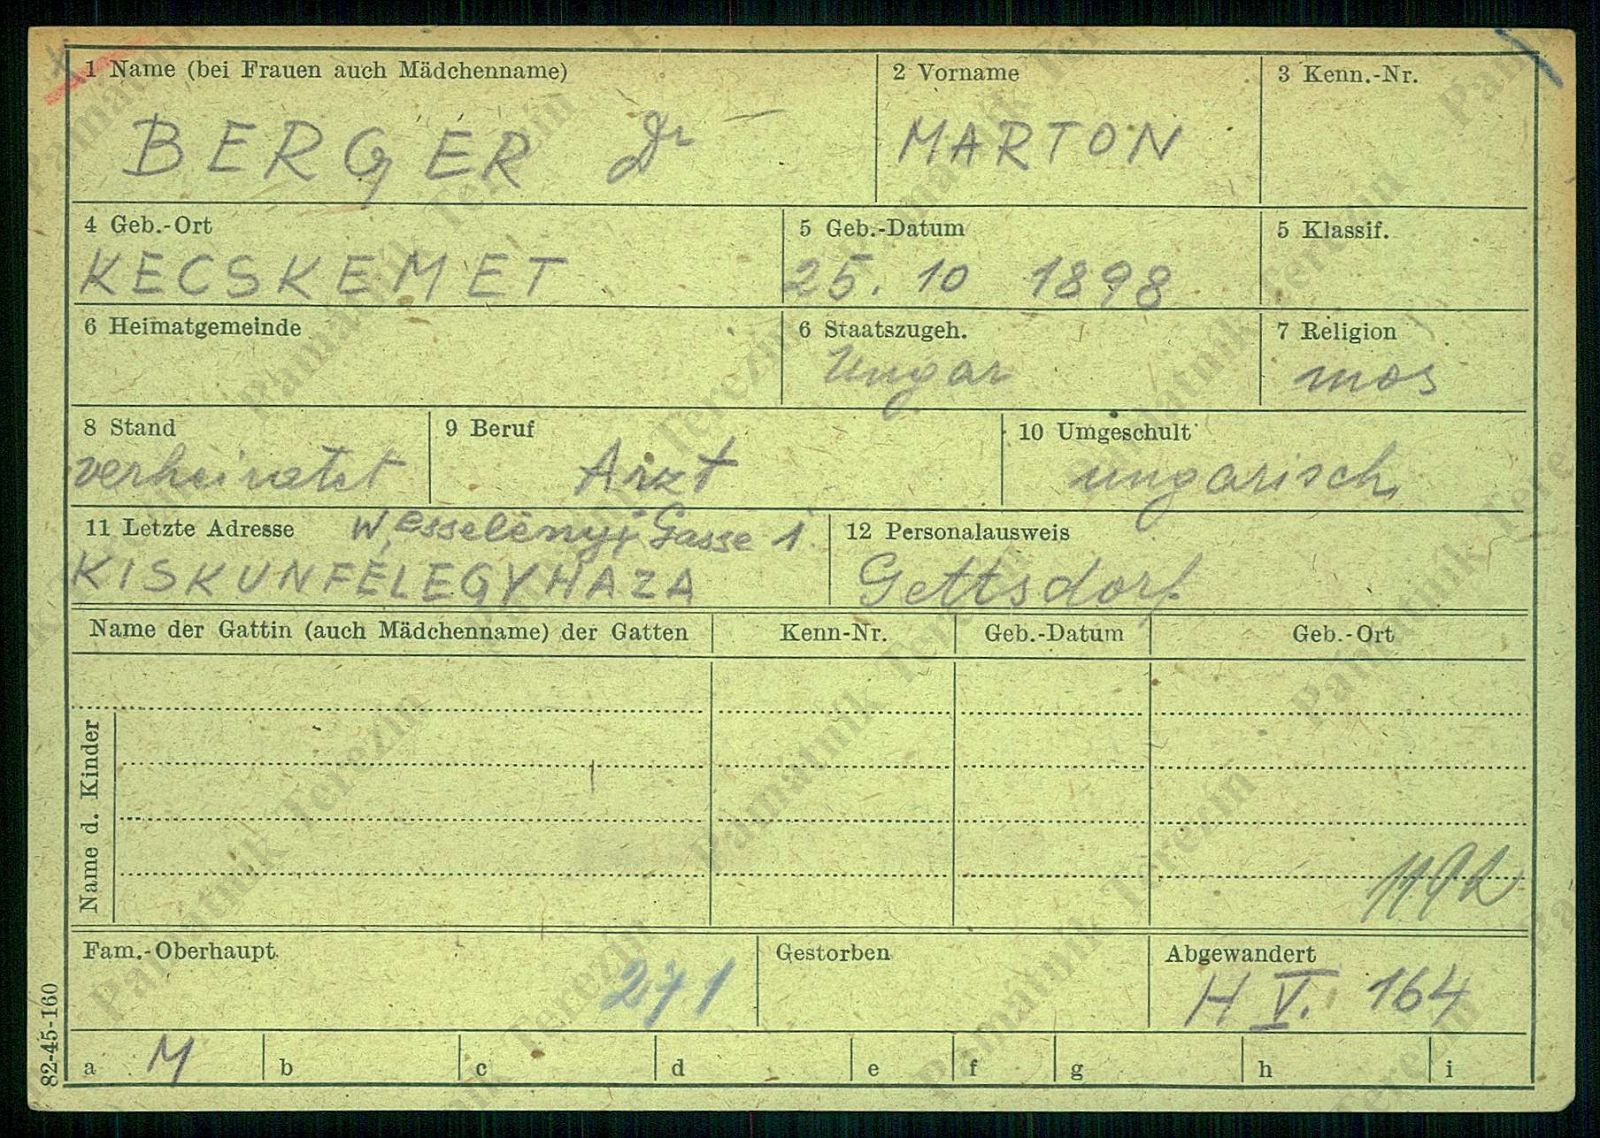 1 Name (bei Frauen auch Mädchenname)
BERGER Dr
2 Vorname
MARTON
3 Kenn.-Nr.
4 Geb.-Ort
KECSKEMET
5 Geb.-Datum
25. 10 1898
5 Klassif.
6 Heimatgemeinde
6 Staatszugeh.
Ungar
7 Religion
mos
8 Stand
verheiratet
9 Beruf
Arzt
10 Umgeschult
ungarisch
11 Letzte Adresse Wesselényi-Gasse 1
KISKUNFÉLEGYHAZA
12 Personalausweis
Gettsdorf
Name der Gattin (auch Mädchenname) der Gatten
Kenn-Nr.
Geb.-Datum
Geb.-Ort
Name d. Kinder
Fam.-Oberhaupt
271
Gestorben
Abgewandert
H V. 164
a M b c d e f g h i
82-45-160
Památník Terezín